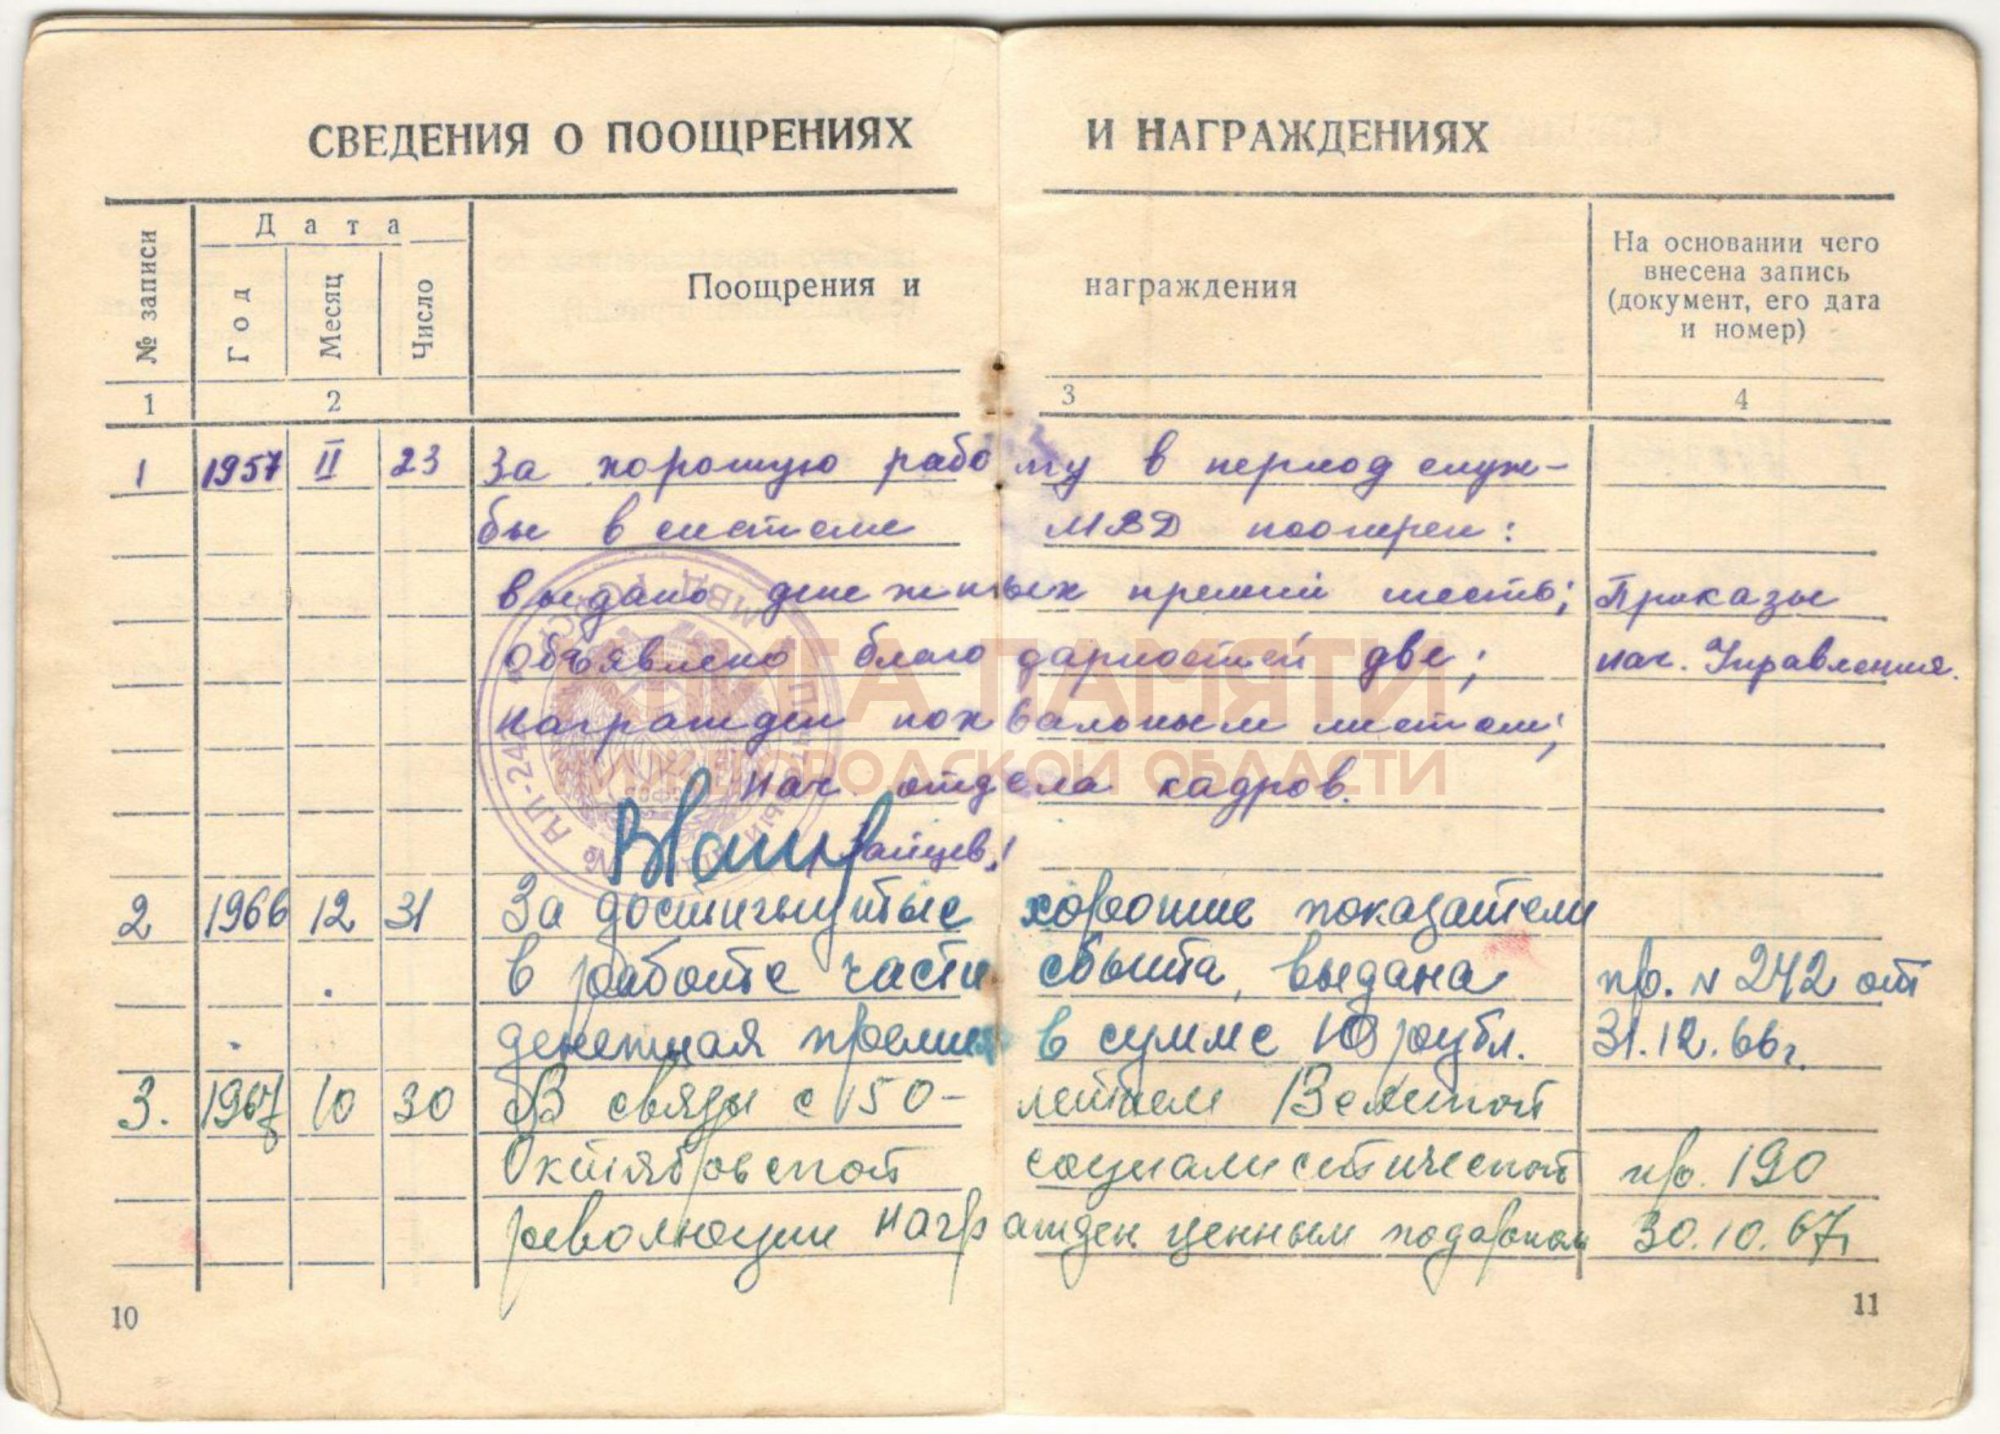 СВЕДЕНИЯ О ПООЩРЕНИЯХ И НАГРАЖДЕНИЯХ
№ записи
Дата
Год
Месяц
Число
Поощрения и награждения
На основании чего
внесена запись
(документ, его дата
и номер)
1 2 3 4
1 1957 II 23 За хорошую работу в период служ-
бы в системе МВД поощрен:
выдано денежных премий шесть; Приказы
объявлено благодарностей две; нач. Управления.
награжден похвальным листом;
Нач. отдела кадров.
/Зайцев./
2 1966 12 31 За достигнутые хорошие показатели
в работе части сбыта, выдана пр. N 242 от
денежная премия в сумме 10 рубл. 31.12.66г.
3. 1967 10 30 В связи с 50-летием Великой
Октябрьской социалистической пр. 190
революции награжден ценным подарком 30.10.67г
10
11
КНИГА ПАМЯТИ
НИЖЕГОРОДСКОЙ ОБЛАСТИ